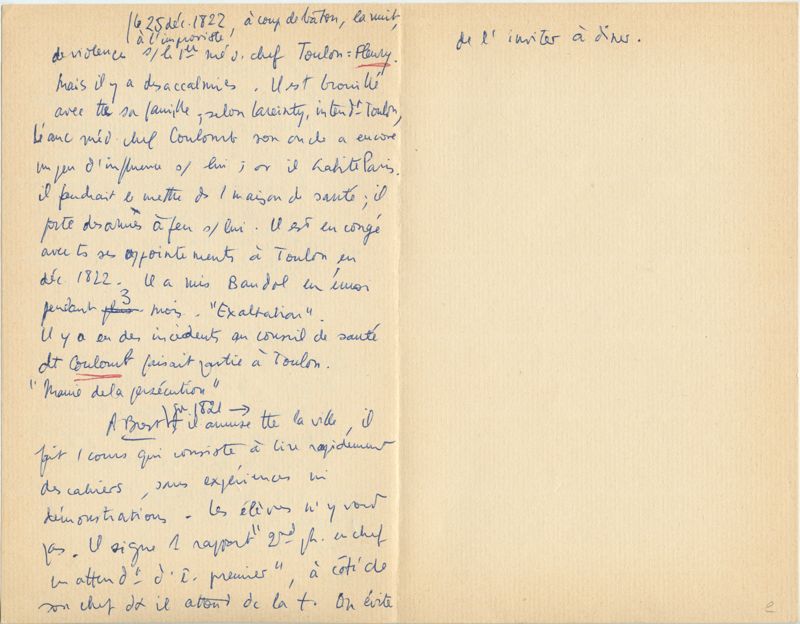 le 25 déc. 1822, à coup de bâton, la nuit,
à l'improviste,
de violence s/ le 1er méd. chef Toulon = Fleury.
Mais il y a des accalmies. Il est brouillé
avec tte sa famille, selon Lareinty, intendt Toulon,
L'anc méd. chef Coulomb son oncle a encore
un peu d'influence s/ lui ; or il habite Paris.
il faudrait le mettre ds 1 maison de santé ; il
porte des armes à feu s/ lui. Il est en congé
avec ts ses appointements à Toulon en
déc 1822. Il a mis Bandol en émoi
pendant 3 mois. "Exaltation".
Il y a eu des incidents au conseil de santé
dt Coulomb faisait partie à Toulon.
"Manie de la persécution"
A Brest, 1821 → il amuse tte la ville, il
fait 1 cours qui consiste à lire rapidement
des cahiers, sans expériences ni
démonstrations. Les élèves n'y vont
pas. Il signe 1 rapport "2nd ph. en chef
en attendt d'ê. premier", à côté de
son chef dt il attend de la +. On évite
de l'inviter à dîner.
e